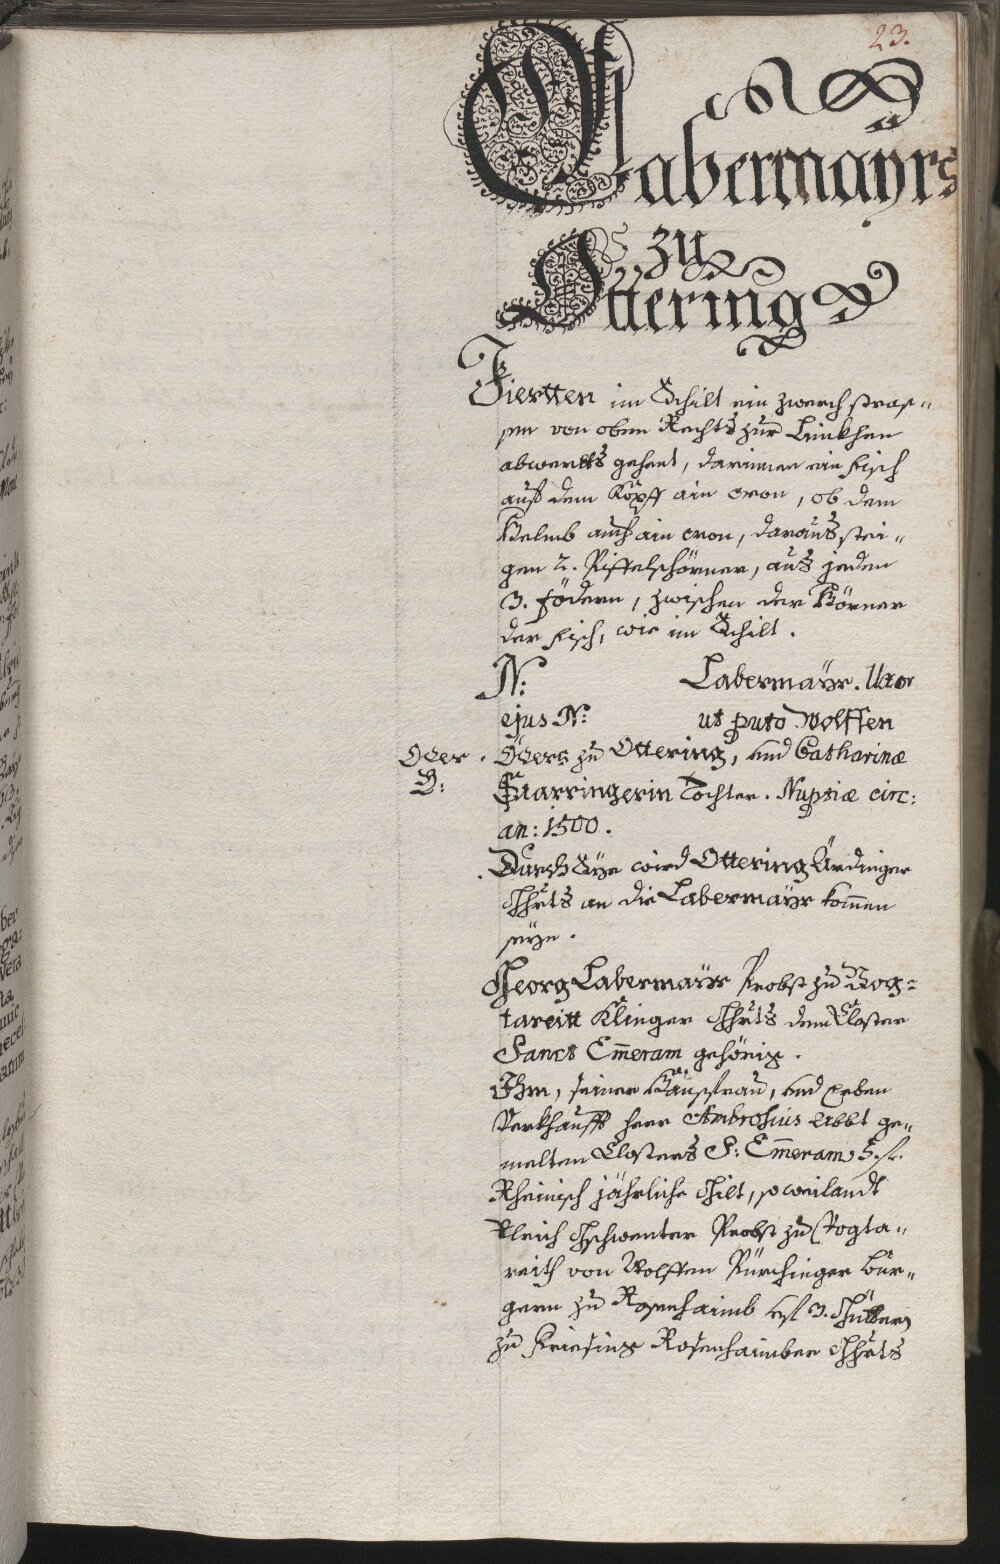 23.
Labermayrs
zu
Ottering
Fiertten im Schilt ein zwerch stras-
sen von oben Rechts zur Linkhen
abwerts gehent, darinnen ein Fisch
auf dem Kopff ain cron, ob dem
Helmb auch ain cron, daraus stei-
gen 2. Piffelshörner, aus jeden
3. födern, zwischen der Hörner
der Fisch, wie im Schilt.
N: Labermayr. Uxor
ejus N: ut puto Wolffen
Öders zu Ottering, und Catharinæ
Oeder
Starringerin Tochter. Nuptiæ circ:
an: 1500.
Durch Sye wird Ottering Ärdinger
Ghrts an die Labermayr kom̄en
seyn.
Georg Labermayr Probst zu Vog-
tareitt Klinger Ghrts dem Closter
Sanct Em̄eram gehörig.
Ihm, seiner Hausfrau, und Erben
Verkhaufft herr Ambrosius Abbt ge-
melten Closters S: Em̄eram 5. fl.
Rheinisch jährliche Gilt, so weilandt
Ulrich Gschwenter Probst zu Vogta-
reith von Wolffen Pürchinger bur-
gern zu Rosenhaimb uf 3. Güttern
zu Rosenhaimber Ghrts